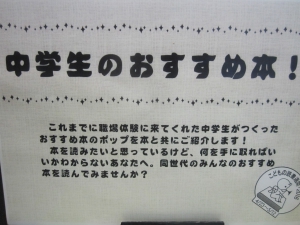 中学生のおすすめ本!
これまでに職場体験に来てくれた中学生がつくった
おすすめ本のポップを本と共にご紹介します!
本を読みたいと思っているけど、何を手に取ればい
いかわからないあなたへ。同世代のみんなのおすすめ
本を読んでみませんか?